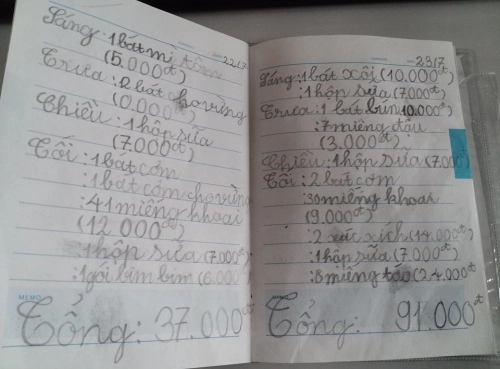 22/7
Sáng: 1 bát mì tôm
(5.000đ)
Trưa: 2 bát cho vừng
(0.000đ)
Chiều: 1 hộp sữa
(7.000đ)
Tối: 1 bát cơm
: 1 bát cơm cho vừng
: 41 miếng khoai
(12 000đ)
: 1 hộp sữa (7.000đ)
: 1 gói bim bim (6.000
MEMO
Tổng: 37.000đ
23/7
Sáng: 1 bát xôi (10.000đ)
: 1 hộp sữa (7000đ)
Trưa: 1 bát bún 10.000đ)
: 7 miếng đậu
(3.000đ)
Chiều: 1 hộp sữa (7.000đ)
Tối: 2 bát cơm
: 30 miếng khoai
(9.000đ)
: 2 xúc xích (14.000đ)
: 1 hộp sữa (7.000đ)
: 8 miếng táo (24.000đ
Tổng: 91.000đ